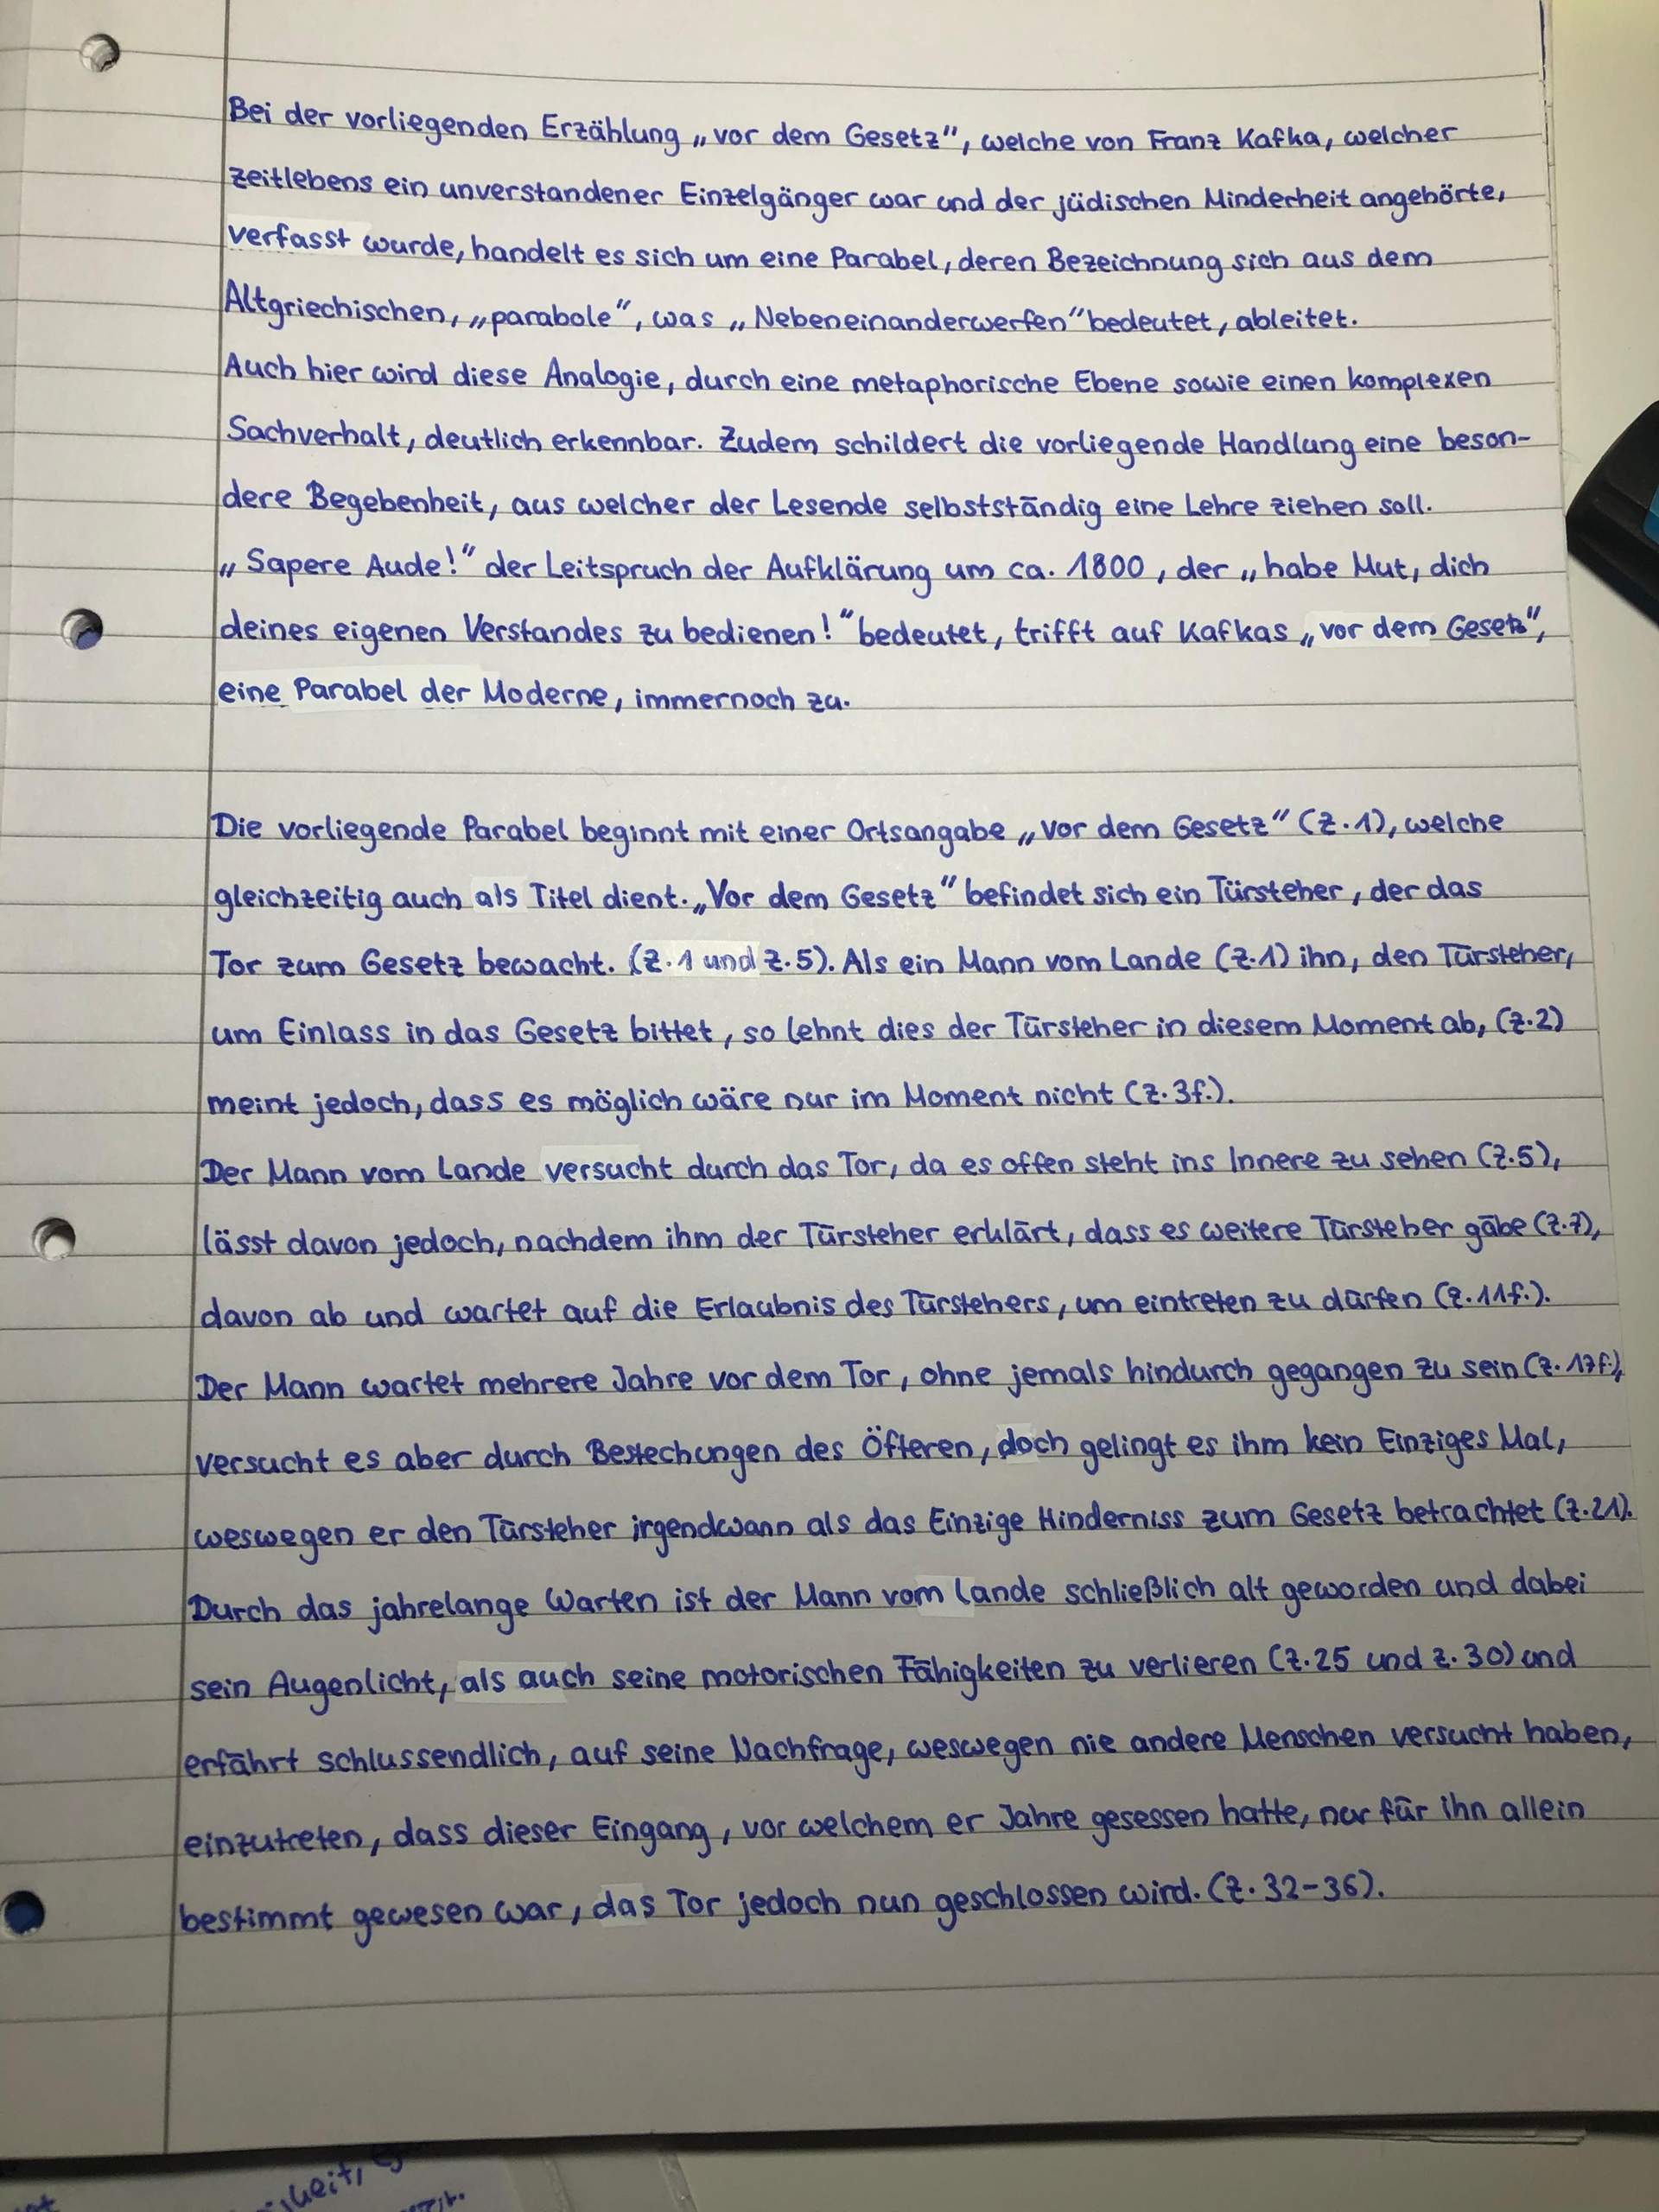 Bei der vorliegenden Erzählung „vor dem Gesetz", welche von Franz Kafka, welcher
zeitlebens ein unverstandener Einzelgänger war und der jüdischen Minderheit angehörte,
verfasst wurde, handelt es sich um eine Parabel, deren Bezeichnung sich aus dem
Altgriechischen, „parabole", was „Nebeneinanderwerfen" bedeutet, ableitet.
Auch hier wird diese Analogie, durch eine metaphorische Ebene sowie einen komplexen
Sachverhalt, deutlich erkennbar. Zudem schildert die vorliegende Handlung eine beson-
dere Begebenheit, aus welcher der Lesende selbstständig eine Lehre ziehen soll.
„Sapere Aude!" der Leitspruch der Aufklärung um ca. 1800, der „habe Mut, dich
deines eigenen Verstandes zu bedienen!" bedeutet, trifft auf Kafkas „vor dem Gesetz",
eine Parabel der Moderne, immernoch zu.
Die vorliegende Parabel beginnt mit einer Ortsangabe „vor dem Gesetz" (Z.1), welche
gleichzeitig auch als Titel dient. „Vor dem Gesetz" befindet sich ein Türsteher, der das
Tor zum Gesetz bewacht. (Z.1 und Z.5). Als ein Mann vom Lande (Z.1) ihn, den Türsteher,
um Einlass in das Gesetz bittet, so lehnt dies der Türsteher in diesem Moment ab, (Z.2)
meint jedoch, dass es möglich wäre nur im Moment nicht (Z.3f.).
Der Mann vom Lande versucht durch das Tor, da es offen steht ins Innere zu sehen (Z.5),
lässt davon jedoch, nachdem ihm der Türsteher erklärt, dass es weitere Türsteher gäbe (Z.7),
davon ab und wartet auf die Erlaubnis des Türstehers, um eintreten zu dürfen (Z.11f.).
Der Mann wartet mehrere Jahre vor dem Tor, ohne jemals hindurch gegangen zu sein (Z.17f.),
versucht es aber durch Bestechungen des Öfteren, doch gelingt es ihm kein Einziges Mal,
weswegen er den Türsteher irgendwann als das Einzige Hinderniss zum Gesetz betrachtet (Z.21).
Durch das jahrelange Warten ist der Mann vom Lande schließlich alt geworden und dabei
sein Augenlicht, als auch seine motorischen Fähigkeiten zu verlieren (Z.25 und Z.30) und
erfährt schlussendlich, auf seine Nachfrage, weswegen nie andere Menschen versucht haben,
einzutreten, dass dieser Eingang, vor welchem er Jahre gesessen hatte, nur für ihn allein
bestimmt gewesen war, das Tor jedoch nun geschlossen wird. (Z.32-36).